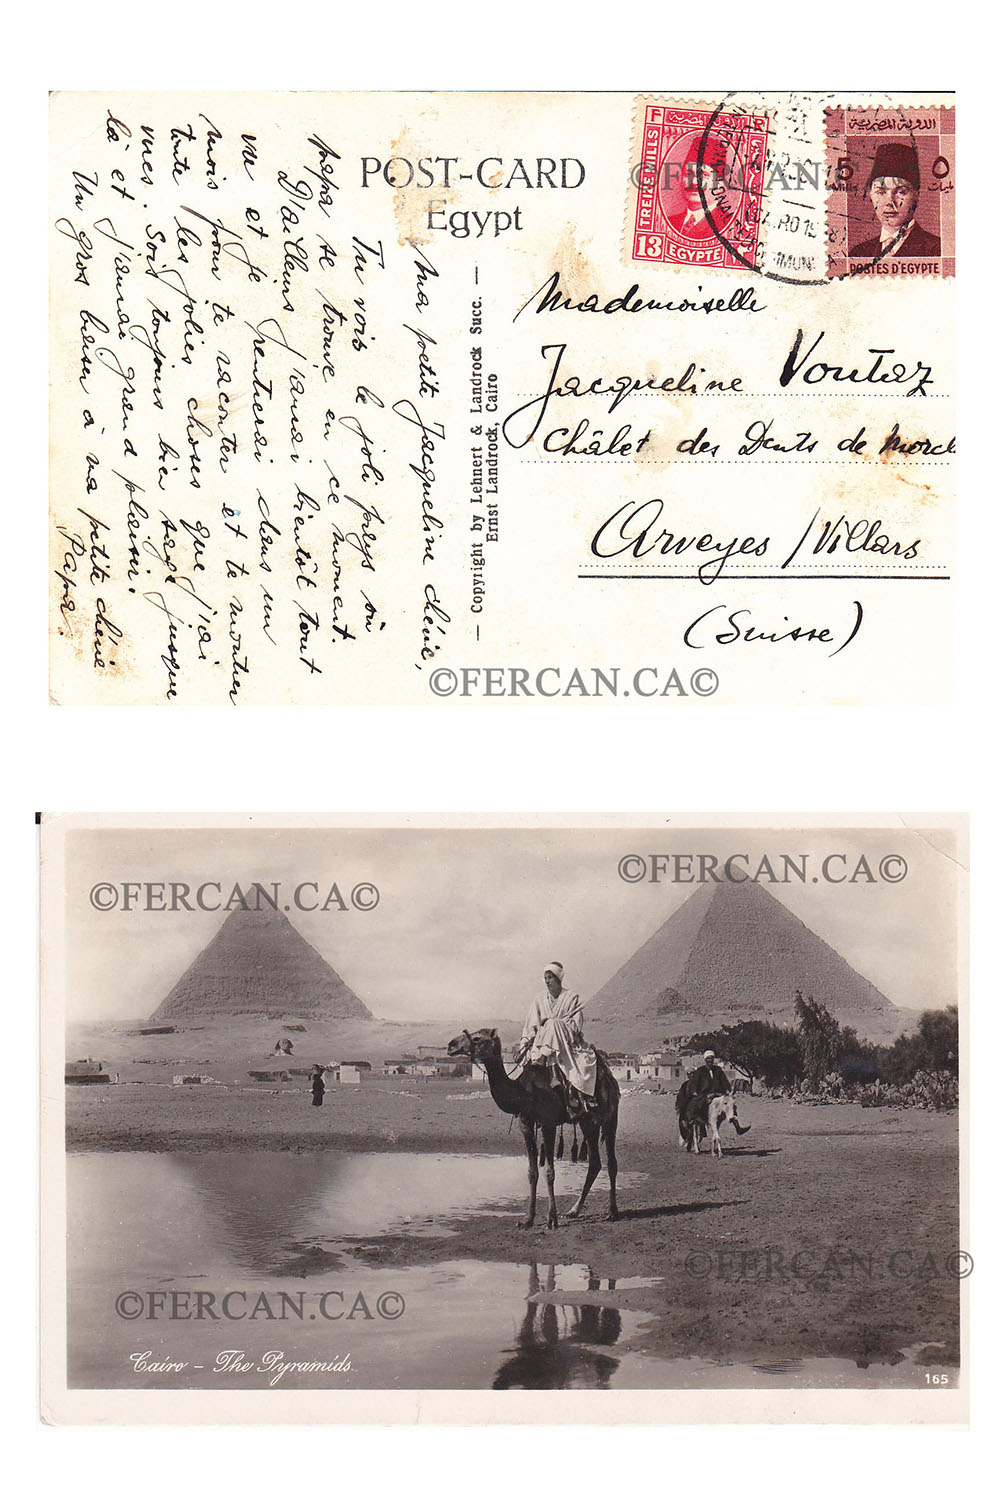 POST-CARD
Egypt
Ma petite Jacqueline chérie,
Tu vois le joli pays où
papa se trouve en ce moment.
D'ailleurs j'aurai bientôt tout
vu et je rentrerai dans un
mois pour te raconter et te montrer
toute les jolies choses que j'ai
vues. Sois toujours bien sage jusque
là et j'aurai grand plaisir.
Un gros baiser à ma petite chérie
Papa.
— Copyright by Lehnert & Landrock Succ. —
Ernst Landrock, Cairo
F
R
TREIZE MILLS
13
EGYPTE
الدولة المصرية
5
Mills
٥
مليمات
POSTES D'EGYPTE
CAIRO
Mademoiselle
Jacqueline Voutaz
Châlet des Dents de Morcl
Arveyes / Villars
(Suisse)
©FERCAN.CA©
©FERCAN.CA©
©FERCAN.CA©
©FERCAN.CA©
©FERCAN.CA©
©FERCAN.CA©
Cairo - The Pyramids.
165